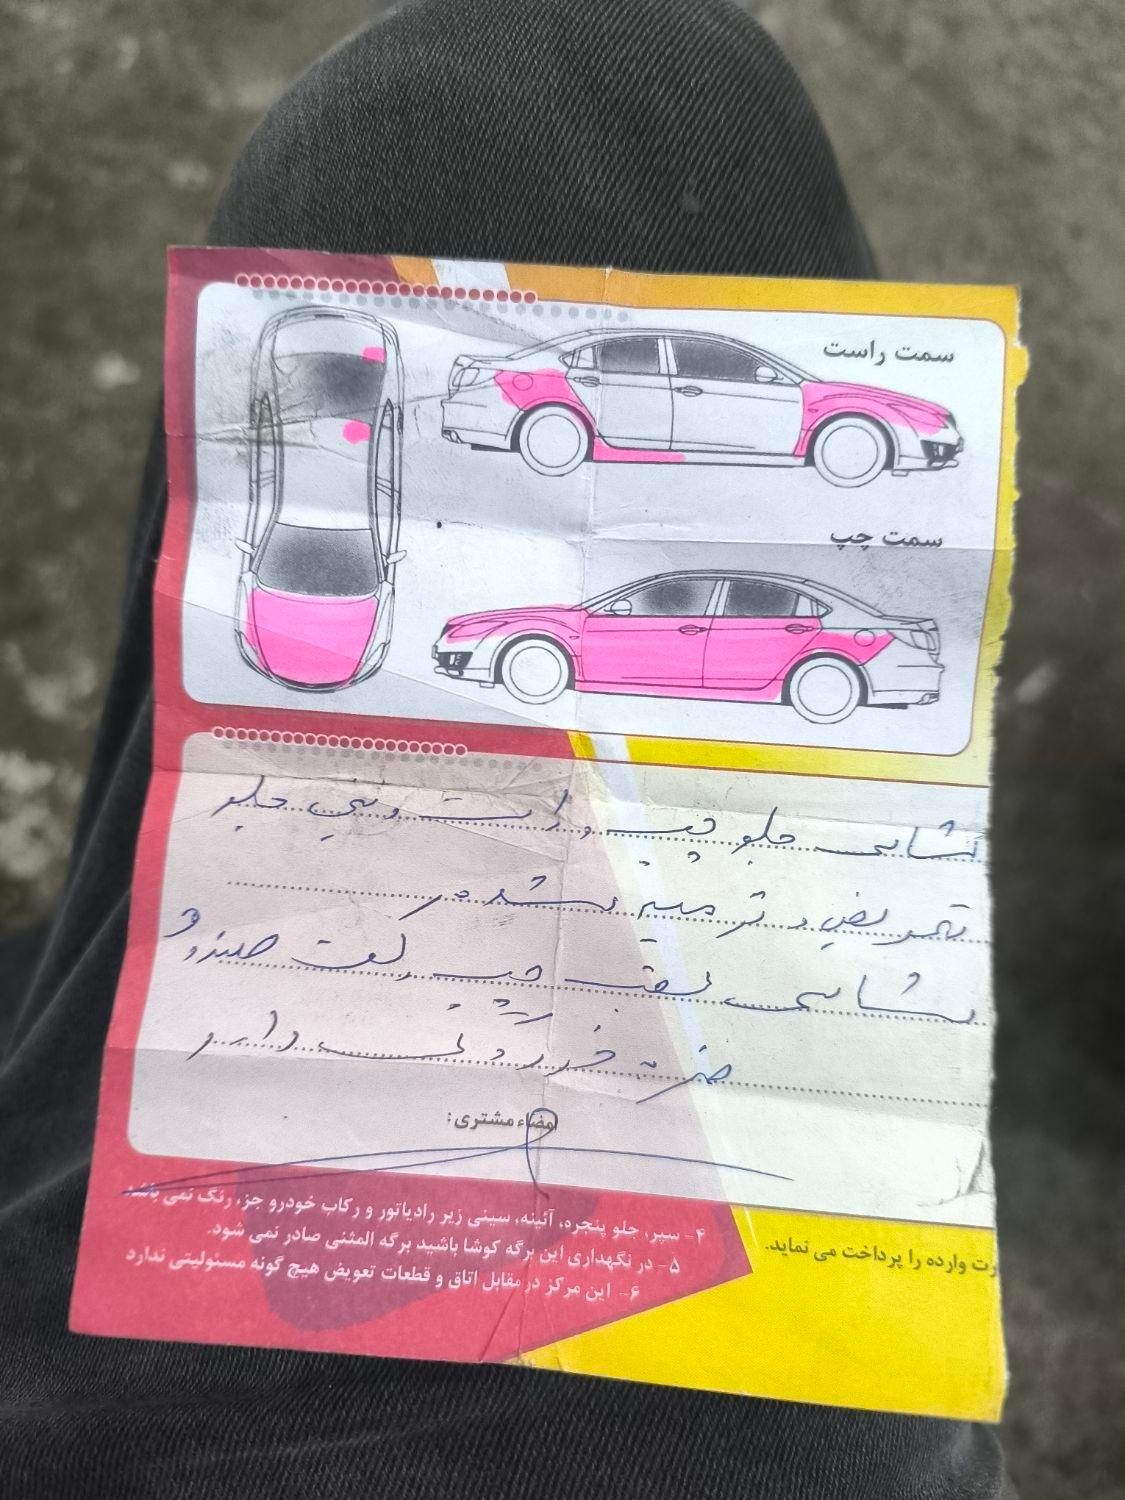 سمت راست
سمت چپ
شاسی جلو چپ و راست و سینی جلو
تعویض و ترمیم شده
شاسی عقب چپ کف صندوق
ضربه خورده
امضاء مشتری:
۴- سپر، جلو پنجره، آئینه، سینی زیر رادیاتور و رکاب خودرو جزء رنگ نمی باشد
۵- در نگهداری این برگه کوشا باشید برگه المثنی صادر نمی شود.
۶- این مرکز در مقابل اتاق و قطعات تعویض هیچ گونه مسئولیتی ندارد
رت وارده را پرداخت می نماید.